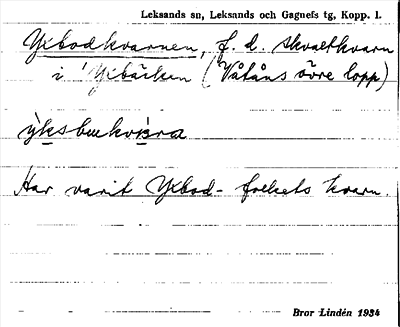 Leksands sn, Leksands och Gagnefs tg, Kopp. l.
Yxbodkvarnen, f. d. skvaltkvarn
i Yxbäcken (Våtåns övre lopp)
Har varit Yxbod-folkets kvarn.
Bror Lindén 1934